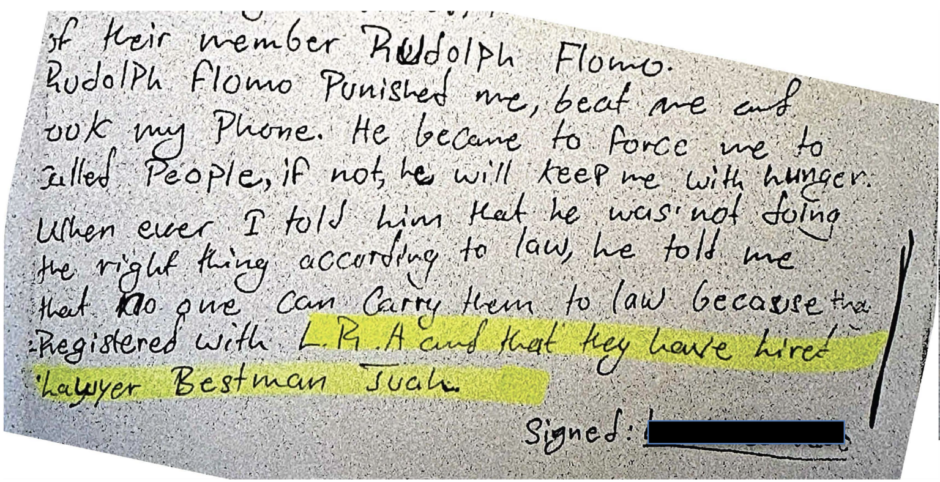 of their member Rudolph Flomo.
Rudolph Flomo Punished me, beat me and
ook my Phone. He became to force me to
alled People, if not, he will keep me with hunger.
When ever I told him that he was not doing
the right thing according to law, he told me
that no one can Carry them to law because tha
Registered with L.R.A and that they have hired
Lawyer Bestman Juah.
Signed: